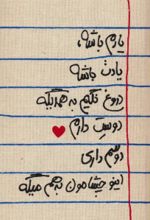 یارم باشه،
یادت باشه
دروغ نگیم به همدیگه
دوست دارم
دوسم داری
اینو چشامون بهم میگه